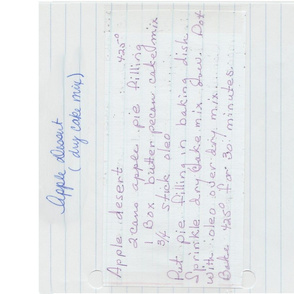 Apple desert
(dry cake mix)
Apple desert 425°
2 cans apple pie filling
1 Box butter pecan cake mix
3/4 stick oleo
Put pie filling in baking dish
Sprinkle dry Cake mix Dot
with oleo over dry mix
Bake 425° for 30 minutes.